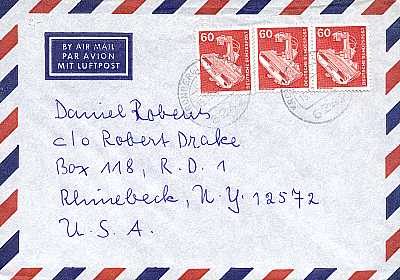 BY AIR MAIL
PAR AVION
MIT LUFTPOST
60 60 60
DEUTSCHE BUNDESPOST DEUTSCHE BUNDESPOST DEUTSCHE BUNDESPOST
Daniel Roberus
c/o Robert Drake
Box 118, R.D. 1
Rhinebeck, N.Y. 12572
U.S.A.